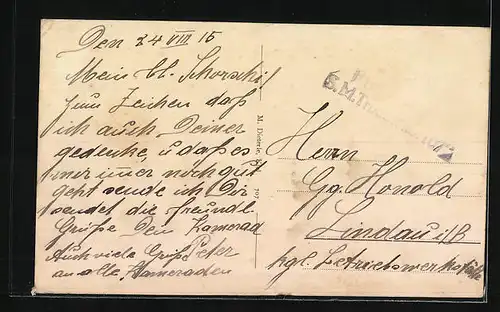 Den 24 VIII 15
Mein lb. Schorschi!
Zum Zeichen daß
ich auch Deiner
gedenke, u. daß es
mir immer noch gut
geht sende ich Dir
sendet die freundl.
Grüße Dein Kamerad
Peter
Auch viele Grüße
an alle Kameraden
M. Dieterle,
S.M.
Herrn
Gg. Honold
Lindau i/B
kgl. Betriebswerkstätte